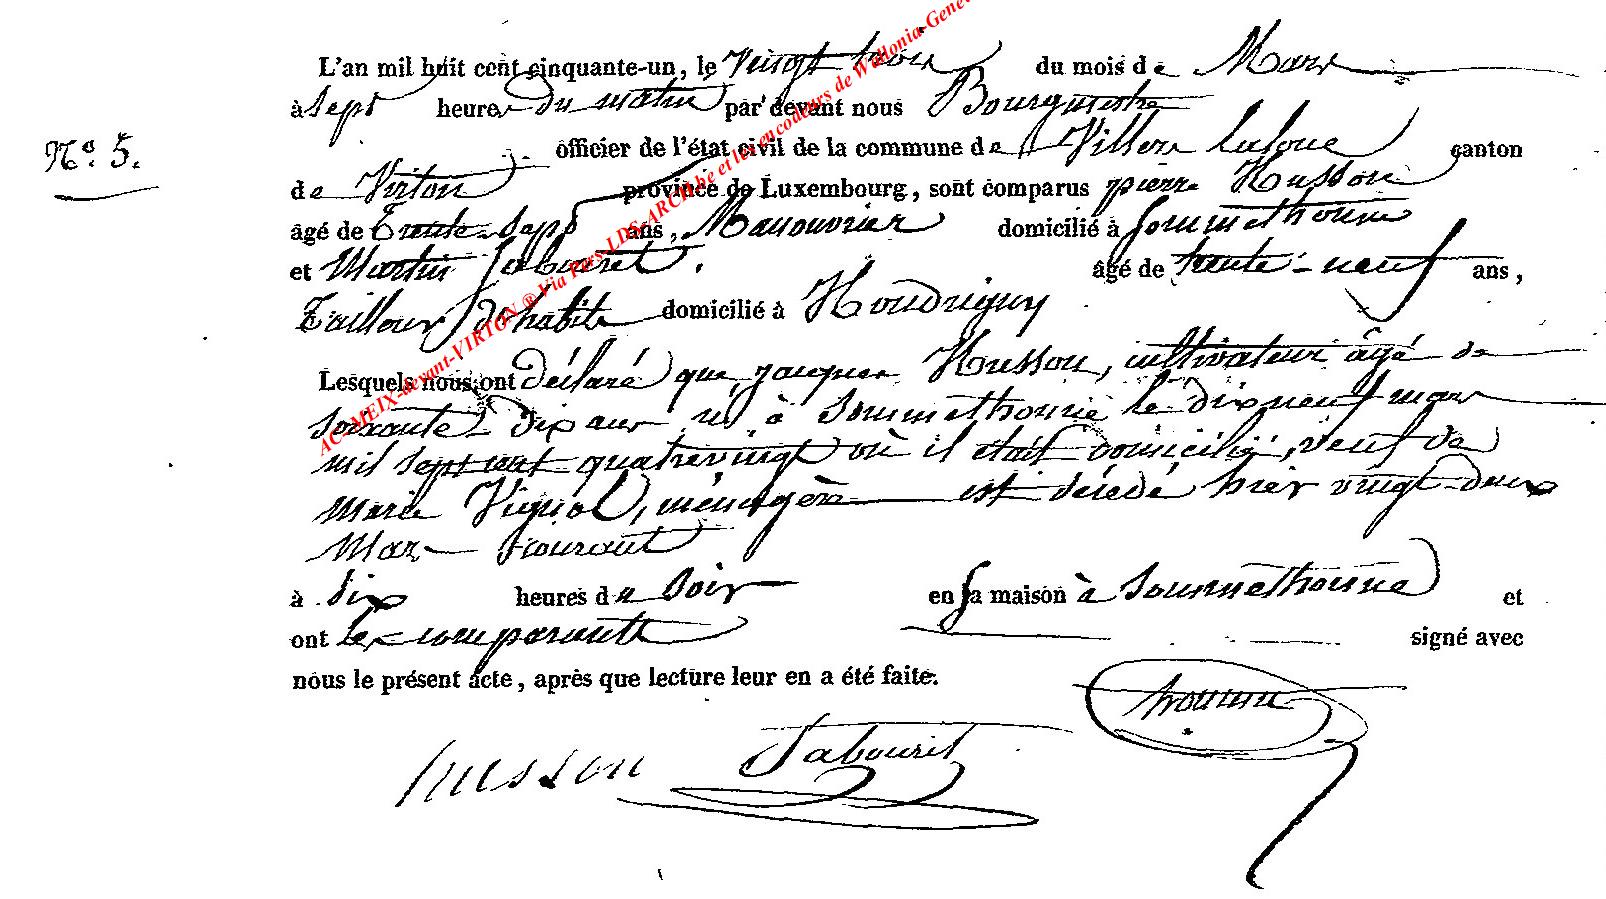 L'an mil huit cent cinquante-un, le Vingt trois du mois de Mars
à Sept heures du matin par devant nous Bourgmestre
N.º 5.
officier de l'état civil de la commune de Villers laloue canton
de Virton province de Luxembourg, sont comparus pierre Husson
âgé de Trente-Sept ans, Manouvrier domicilié à Sommethonne
et Martin Jabouret. âgé de trente-neuf ans,
Tailleur d'habits domicilié à Houdrigny
Lesquels nous ont déclaré que jacques Husson, cultivateur âgé de
soixante-dix ans né à Sommethonne le dix neuf mars
mil sept cent quatrevingt où il était domicilié, veuf de
Marie Vignol, ménagère est décédé hier vingt-deux
Mars courant
à dix heures du Soir en sa maison à Sommethonne et
ont les comparants signé avec
nous le présent acte, après que lecture leur en a été faite.
husson Jabouret
AC-MEIX-devant-VIRTON ® Via Pers-LDS-ARCH.be et les encodeurs de Wallonia-Gene